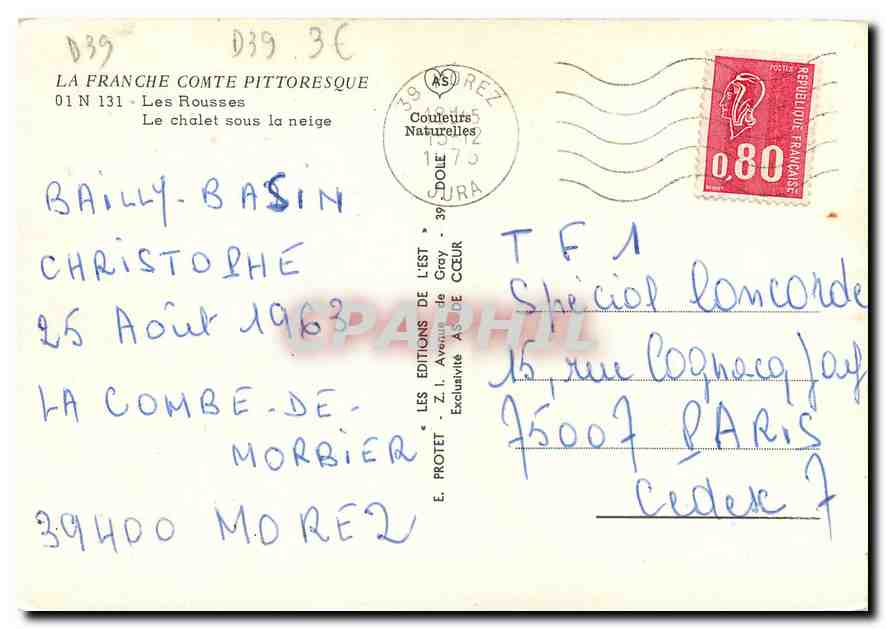 D39 D39 3€
LA FRANCHE COMTE PITTORESQUE
01 N 131 - Les Rousses
Le chalet sous la neige
BAILLY-BASIN
CHRISTOPHE
25 Août 1963
LA COMBE-DE-
MORBIER
39400 MOREZ
AS
Couleurs
Naturelles
39 MOREZ
JURA
E. PROTET - « LES EDITIONS DE L'EST »
Z. I. Avenue de Gray - 39 DOLE
Exclusivité AS DE CŒUR
POSTES
REPUBLIQUE FRANÇAISE
0,80
TF1
Spécial Concorde
15, rue Cognacq Jay
75007 PARIS
Cédex 7
CPAPHIL